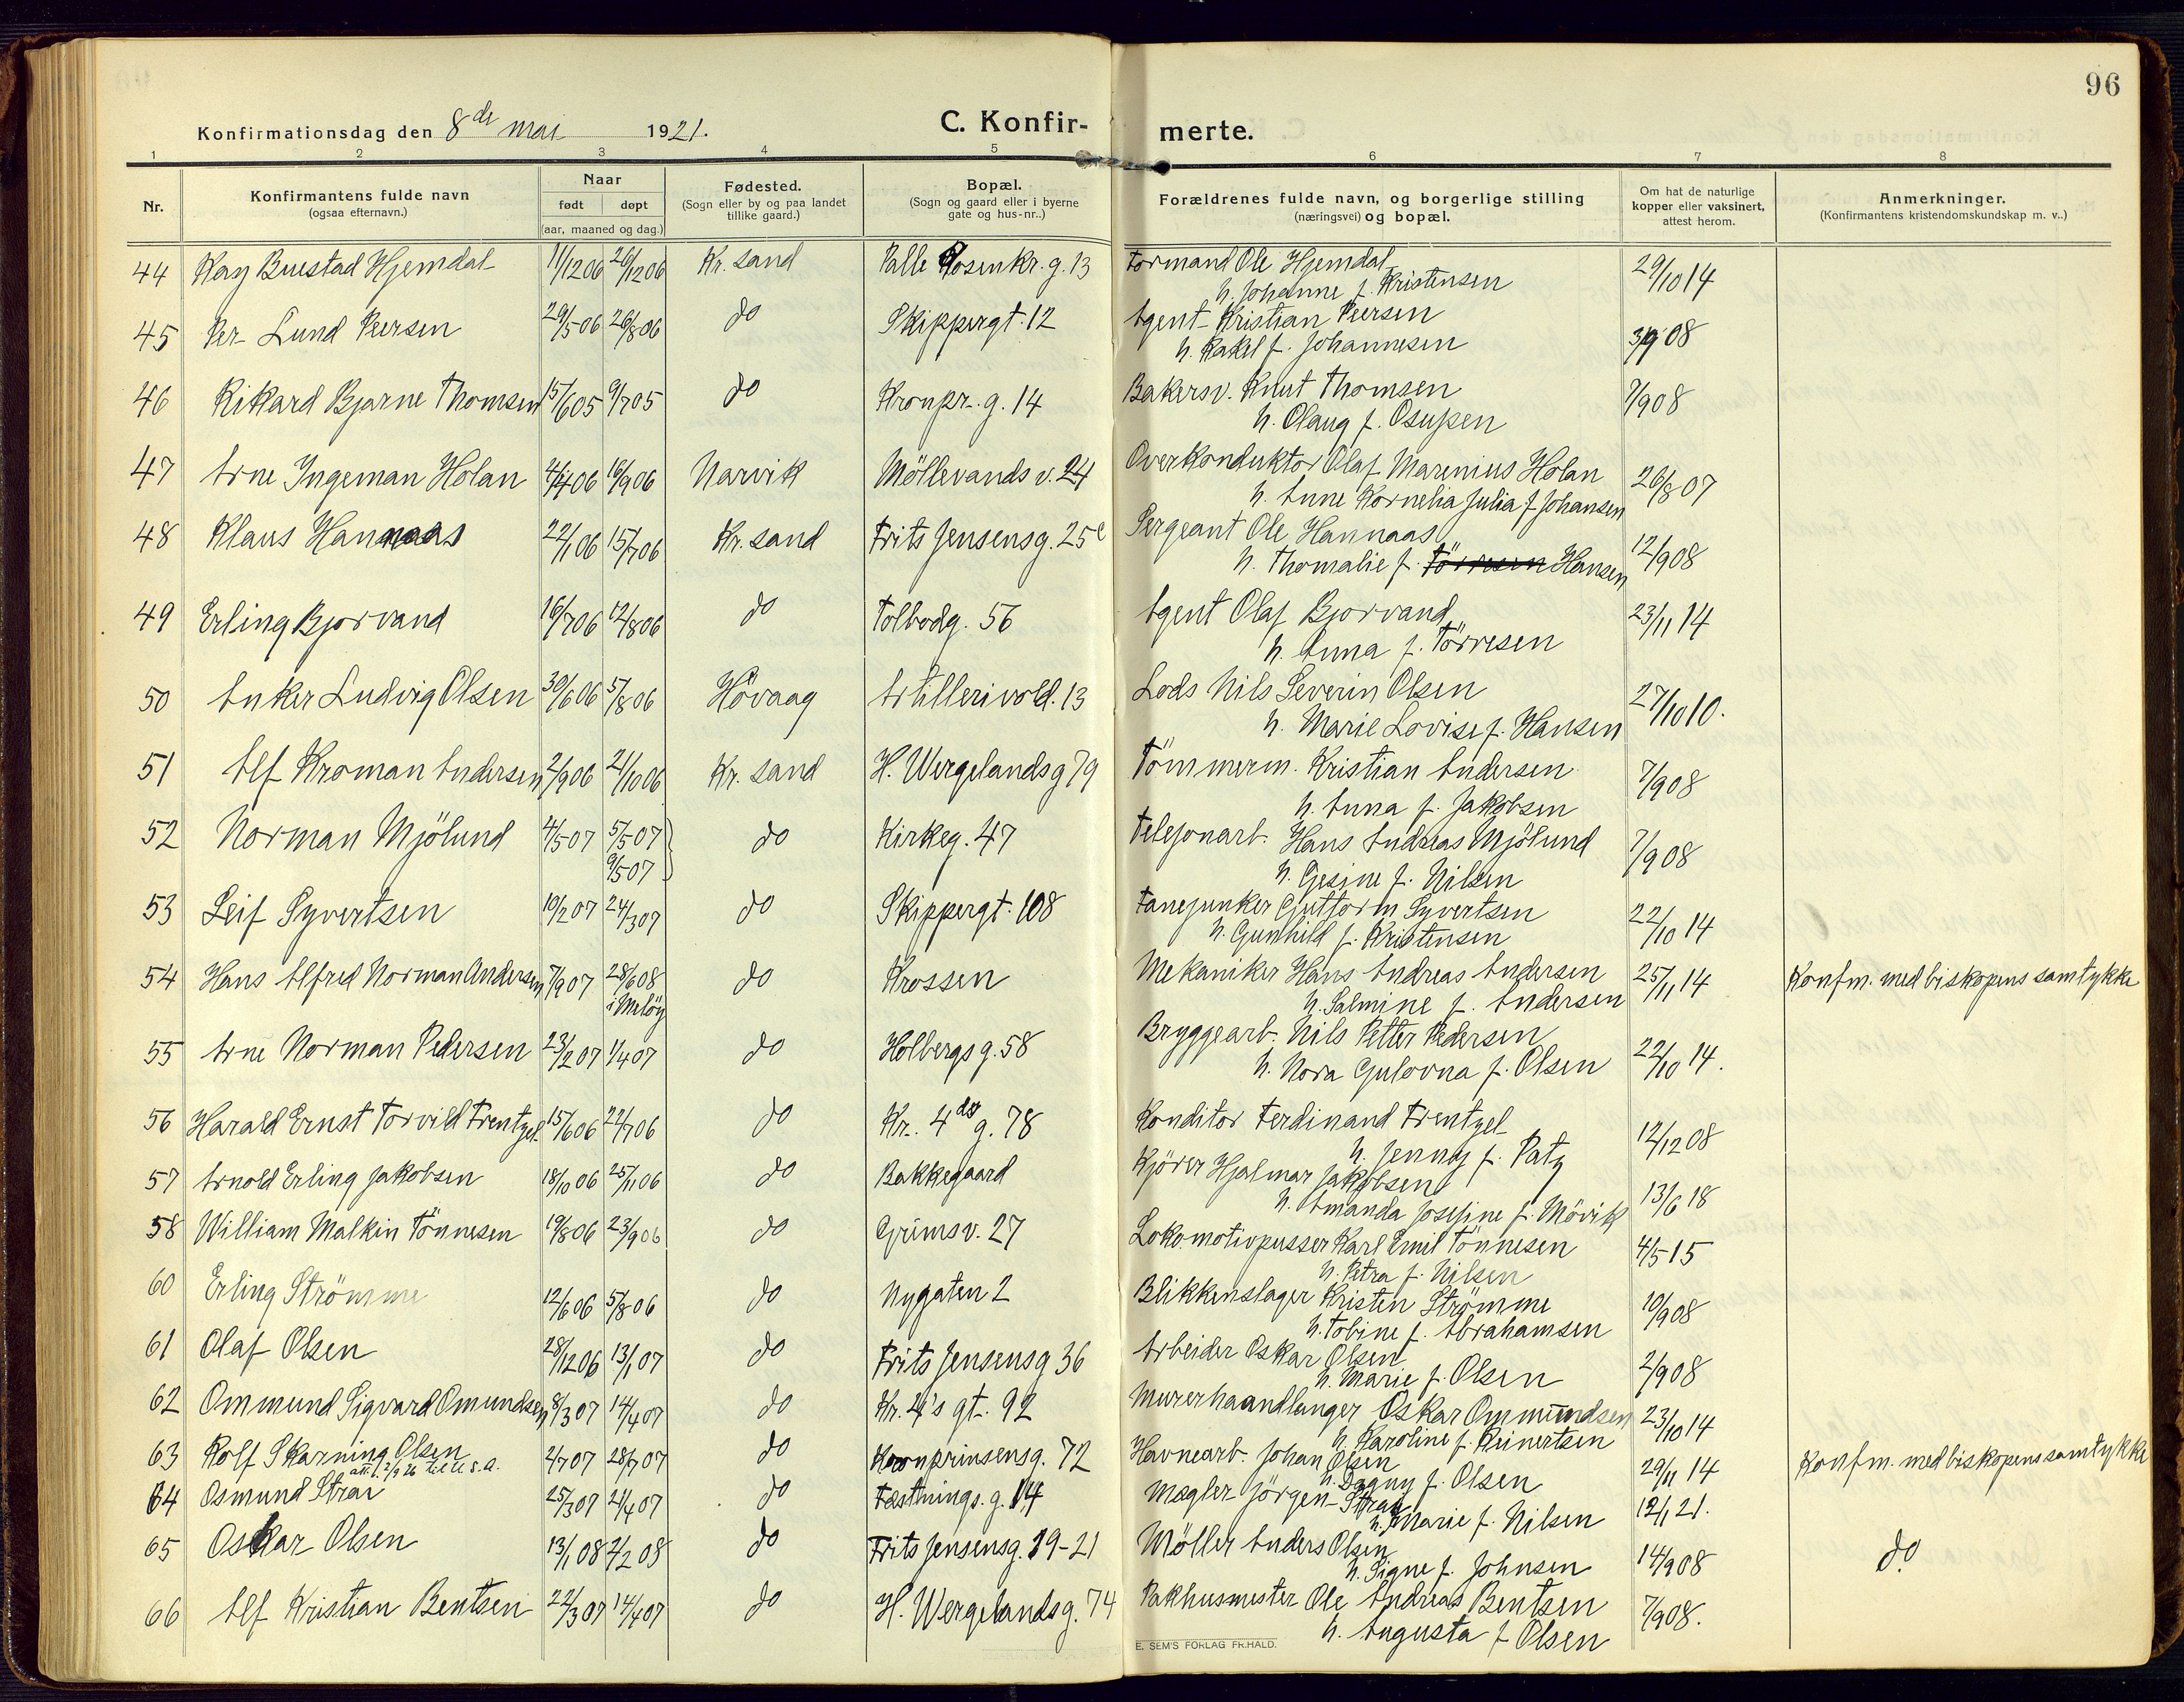 96
Konfirmationsdag den 8de mai 1921. C. Konfirmerte.
1 2 3 4 5 6 7 8
Nr. | Konfirmantens fulde navn (ogsaa efternavn.) | Naar født døpt (aar, maaned og dag.) | Fødested. (Sogn eller by og paa landet tillike gaard.) | Bopæl. (Sogn og gaard eller i byerne gate og hus-nr..) | Forældrenes fulde navn, og borgerlige stilling (næringsvei) og bopæl. | Om hat de naturlige kopper eller vaksinert, attest herom. | Anmerkninger. (Konfirmantens kristendomskundskap m. v..)
44 Kay Buestad Hjemdal 11/12 06 26/12 06 Kr. sand Palle Rosenkr. g. 13 Formand Ole Hjemdal 29/10 14
h. Johanne f. Kristensen
45 Per Lund Peersen 29/5 06 26/8 06 do Skippergt. 12 Agent Kristian Peersen 3/9 08
h. Rakel f. Johannesen
46 Rikard Bjarne Thomsen 15/6 05 9/7 05 do Kronpr. g. 14 Bakersv. Knut Thomsen 7/9 08
h. Olaug f. Osuldsen
47 Arne Ingeman Holan 4/4 06 16/9 06 Narvik Möllevands v. 24 Overkonduktor Olaf Marenius Holan 26/8 07
h. Anne Kornelia Julia f. Johansen
48 Klaus Hannaas 22/1 06 15/7 06 Kr. sand Frits Jensensg. 25c Sergeant Ole Hannaas 12/9 08
h. Thomalie f. Törresen Hansen
49 Erling Bjorvand 16/7 06 12/8 06 do Tolbodg. 56 Agent Olaf Bjorvand 23/11 14
h. Anna f. Törresen
50 Anker Ludvig Olsen 30/6 06 5/8 06 Hövaag Artillerivold. 13 Lods Nils Severin Olsen 27/10 10.
h. Marie Lovise f. Hansen
51 Alf Kroman Andersen 2/9 06 21/10 06 Kr. sand H. Wergelandsg 79 Tömmerm. Kristian Andersen 7/9 08
h. Anna f. Jakobsen
52 Norman Mjölund 4/5 07 5/5 07 do Kirkeg. 47 Telefonarb. Hans Andreas Mjölund 7/9 08
9/5 07 h. Gesine f. Nilsen
53 Leif Syvertsen 10/2 07 24/3 07 do Skippergt. 108 Fanejunker Guttorm Syvertsen 22/10 14
h. Gunhild f. Kristensen
54 Hans Alfred Norman Andersen 7/9 07 28/6 08 do Krossen Mekaniker Hans Andreas Andersen 25/11 14 Konfm. med biskopens samtykke
i Melöy h. Salmine f. Andersen
55 Arne Norman Pedersen 23/2 07 1/4 07 do Holbergs g. 58 Bryggearb. Nils Petter Pedersen 22/10 14.
h. Nora Gulovna f. Olsen
56 Harald Ernst Torvild Frentzel 15/6 06 22/7 06 do Kr. 4des g. 78 Konditor Ferdinand Frentzel 12/12 08
h. Jenny f. Patz
57 Arnold Erling Jakobsen 18/10 06 25/11 06 do Bakkegaard Kjörer Hjalmar Jakobsen 13/6 18
h. Amanda Josefine f. Mövik
58 William Malkin Tönnesen 19/8 06 23/9 06 do Grims v. 27 Lokomotivpusser Karl Emil Tönnesen 4/5 15
h. Petra f. Nilsen
60 Erling Strömme 12/6 06 5/8 06 do Nygaten 2 Blikkenslager Kristen Strömme 10/9 08
h. Tobine f. Abrahamsen
61 Olaf Olsen 28/12 06 13/1 07 do Frits Jensensg 36 Arbeider Oskar Olsen 2/9 08
h. Marie f. Olsen
62 Ommund Sigvard Omundsen 8/3 07 14/4 07 do Kr. 4's gt. 92 Murerhaandlanger Oskar Ommundsen 23/10 14
h. Karoline f. Reinertsen
63 Rolf Skarning Olsen 4/7 07 28/7 07 do Kronprinsensg. 72 Havnearb. Johan Olsen 29/11 14 Konfm. med biskopens samtykke
att. 2/9 26 til U.S.A. h. Dagny f. Olsen
64 Osmund Strai 25/3 07 21/4 07 do Fæstnings. g. 14 Mægler Jörgen Strai 12/1 21.
h. Marie f. Nilsen
65 Oskar Olsen 13/1 08 2/2 08 do Frits Jensensg. 19-21 Möller Anders Olsen 14/9 08 do.
h. Signe f. Johnsen
66 Alf Kristian Bentsen 22/3 07 14/4 07 do H. Wergelandsg. 74 Pakhusmester Ole Andreas Bentsen 7/9 08.
h. Augusta f Olsen
E. SEM'S FORLAG FR.HALD.